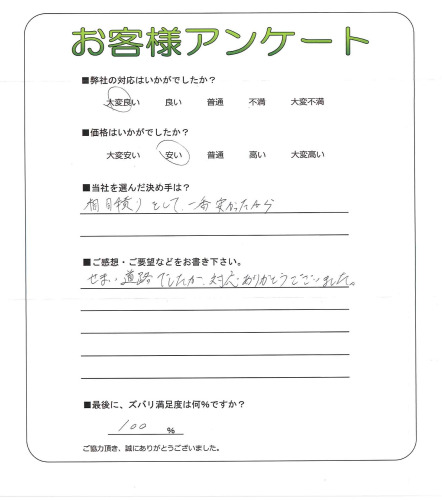 お客様アンケート
■弊社の対応はいかがでしたか？
大変良い 良い 普通 不満 大変不満
■価格はいかがでしたか？
大変安い 安い 普通 高い 大変高い
■当社を選んだ決め手は？
相見積りとして、一番安かったから
■ご感想・ご要望などをお書き下さい。
せまい道路でしたが、対応ありがとうございました。
■最後に、ズバリ満足度は何%ですか？
100 %
ご協力頂き、誠にありがとうございました。